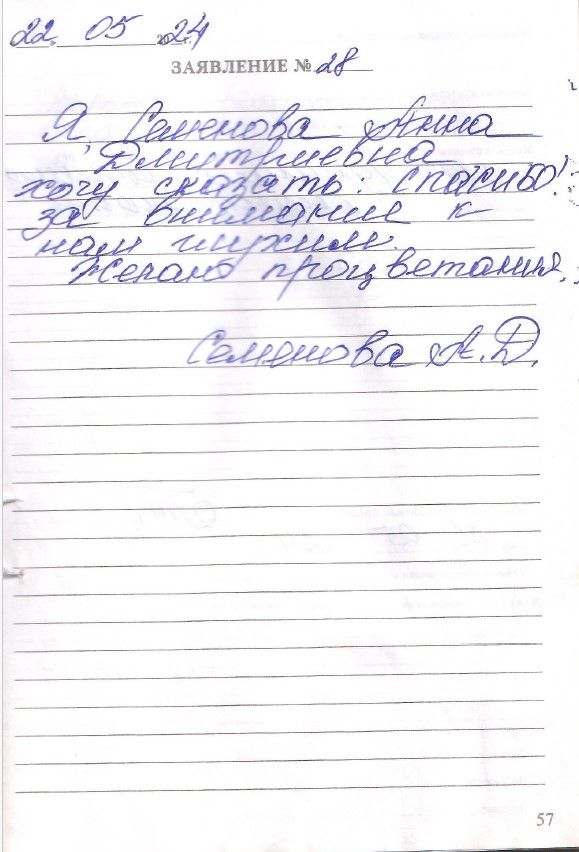 22. 05 2024
ЗАЯВЛЕНИЕ № 28
Я, Семенова Анна
Дмитриевна
хочу сказать: спасибо!
за внимание к
нам глухим.
Желаю процветания.
Семенова А.Д.
57